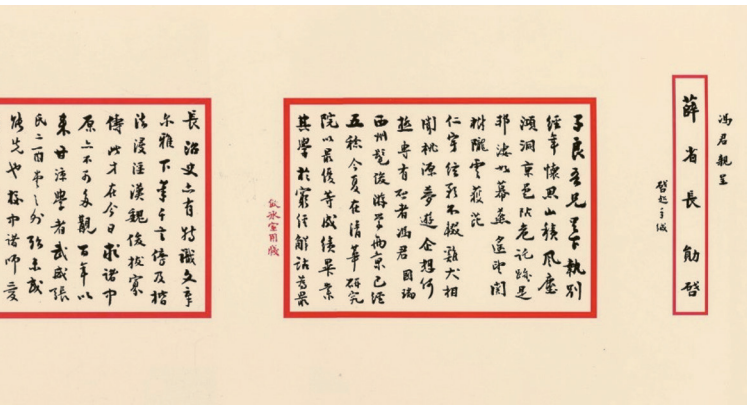 馮君親呈
薛省長勛啓
啓超手緘
子良吾兄足下執别
經年懷思山積風塵
澒洞京邑阽危託跡
邦淒如幕燕遙望關
樹隴雲蔭茫
仁宇弦歌不輟雞犬相
聞桃源夢遊企想何
極專有啓者馮君國瑞
西州髦俊游学兩京已歷
五稔今夏在清華研究
院以最優等成績畢業
其學於窮經解詁為最
飲冰室用牋
長治史亦有特識文章
尔雅下筆千言及楷
法浸淫漢魏俊拔寡
儔此才在今日求諸中
原亦不可多觀百年以
來甘涼學者武威張
氏二酉堂之外殆未或
能先也中諸師愛